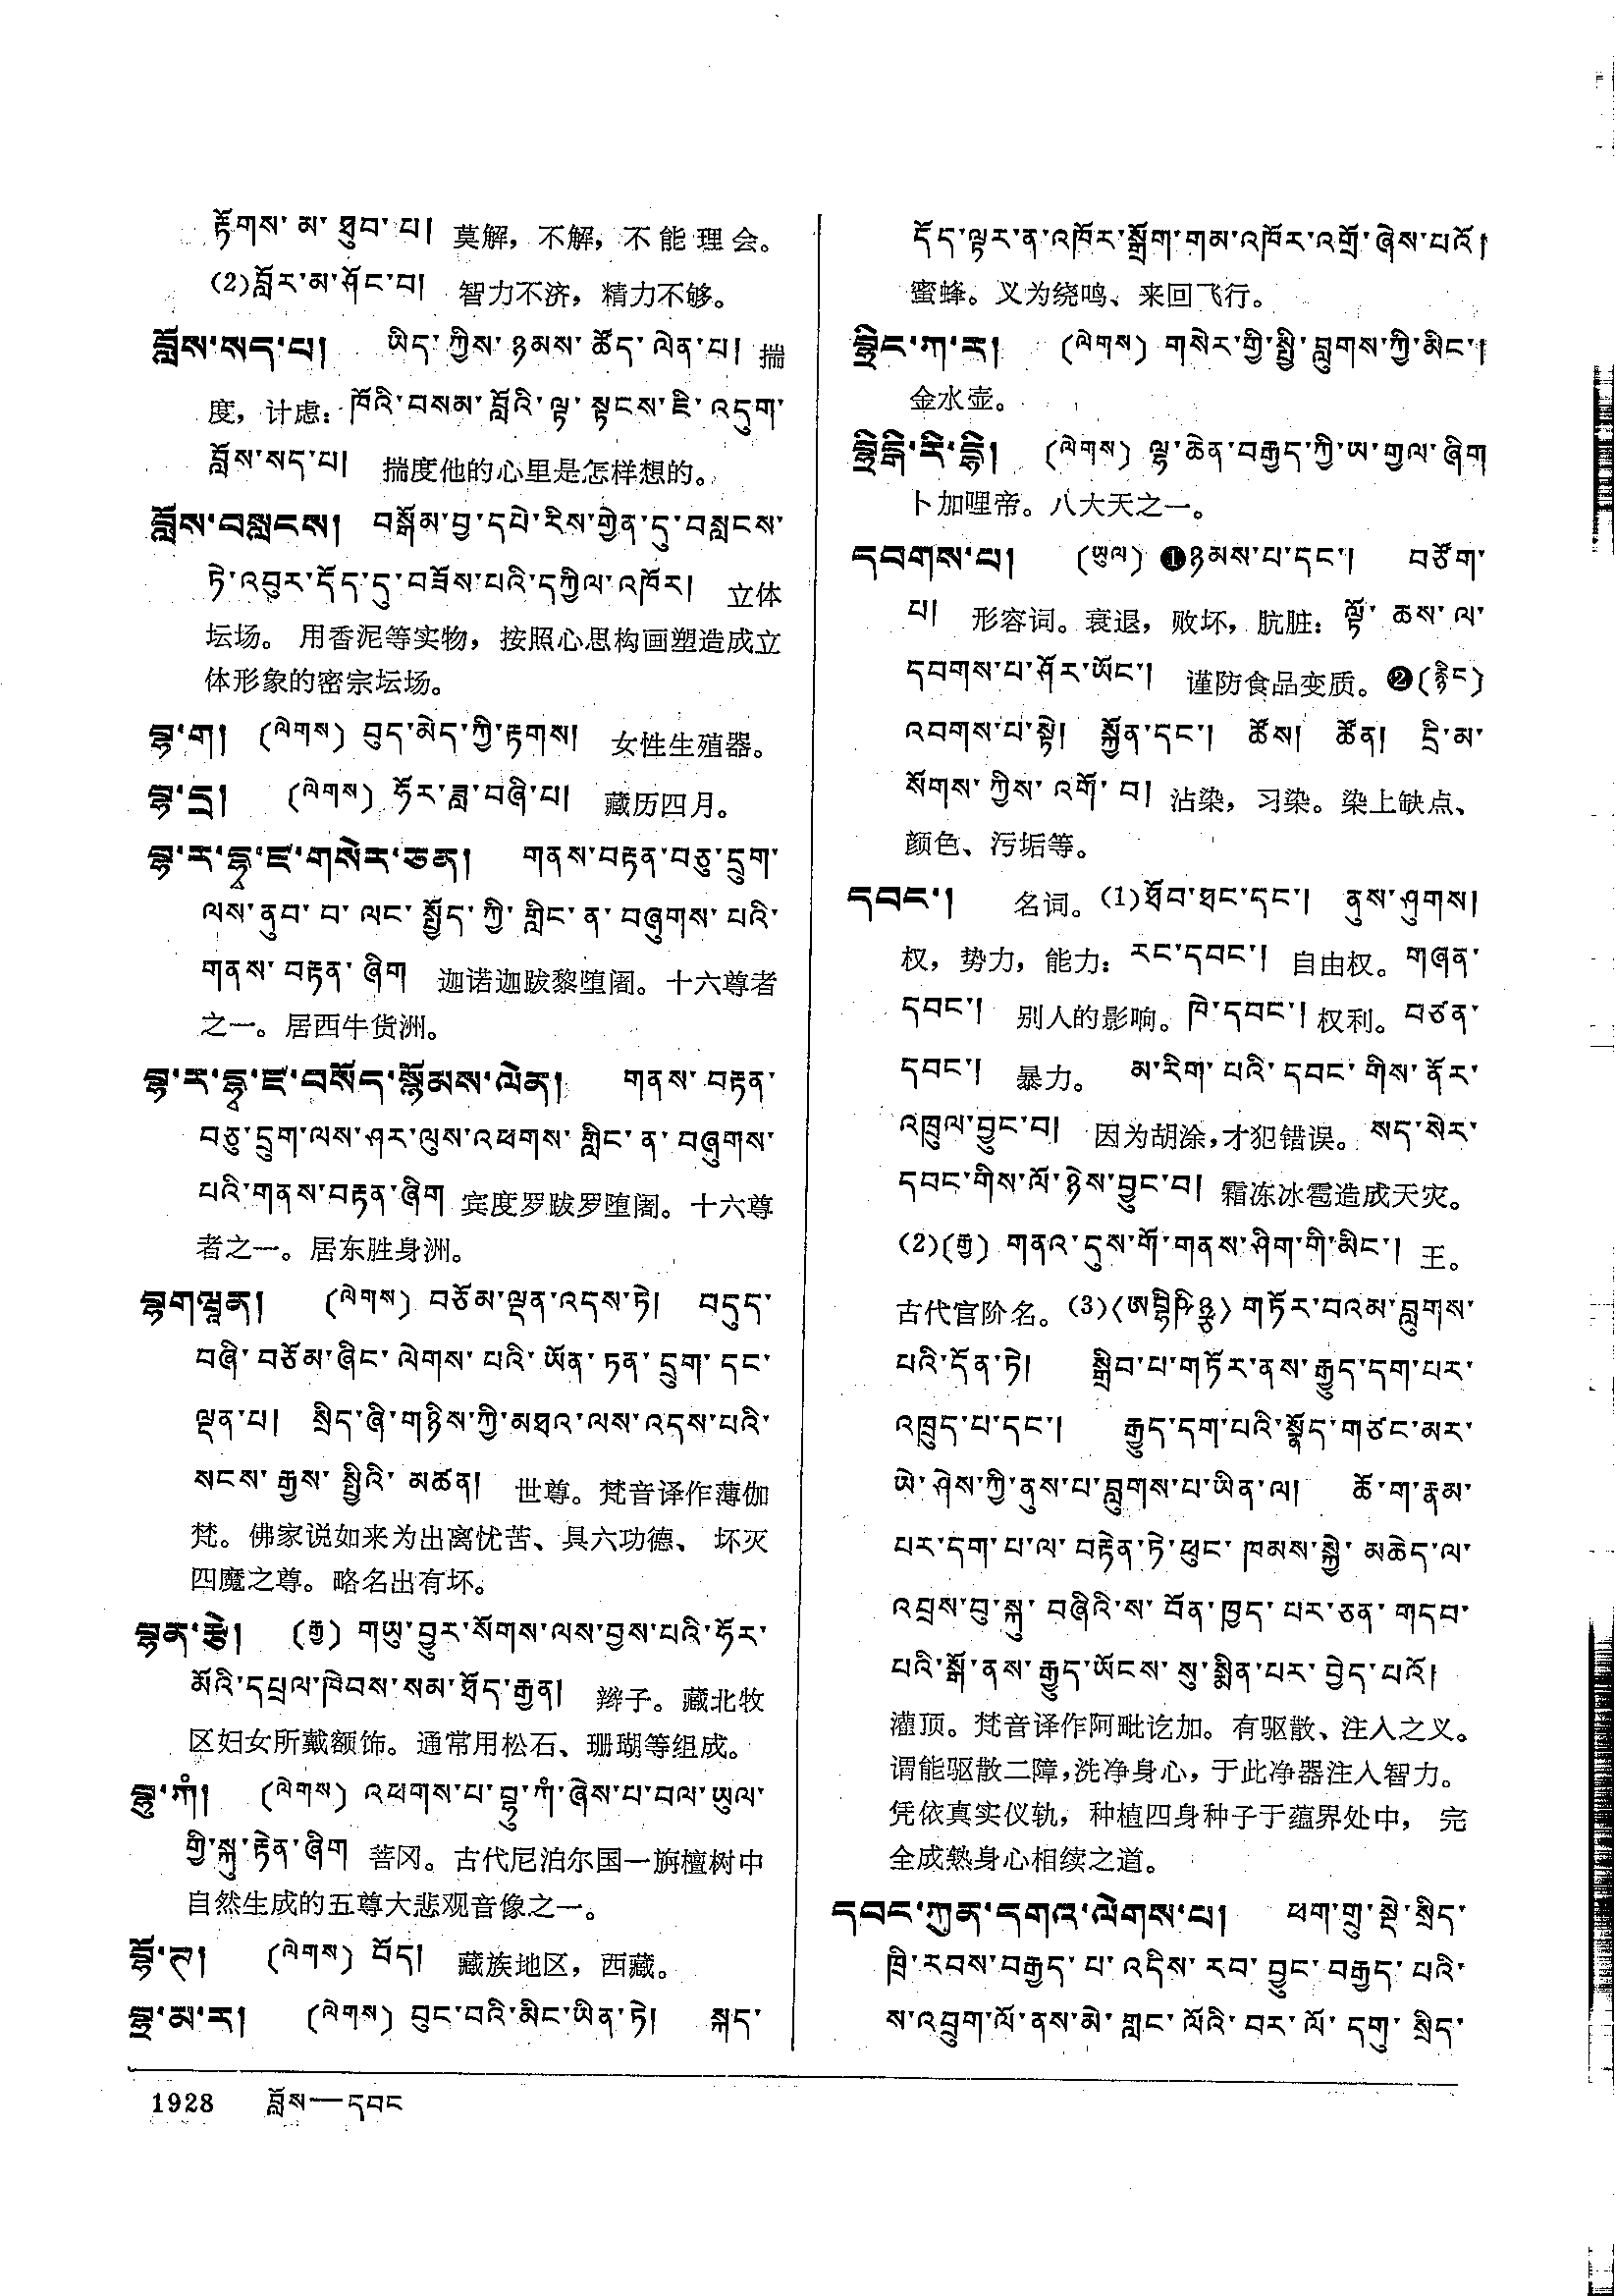 རྟོགས་མ་ཐུབ་པ། 莫解，不解，不能理会。
(2)བློར་མ་ཤོང་བ། 智力不济，精力不够。
བློས་སད་པ། ཡིད་ཀྱིས་ཉམས་ཚོད་ལེན་པ། 揣
度，计虑：ཁོའི་བསམ་བློའི་ལྟ་སྟངས་ཇི་འདུག་
བློས་སད་པ། 揣度他的心里是怎样想的。
བློས་བསླངས། བསྒོམ་བྱ་དཔེ་རིས་གྱེན་དུ་བསླངས་
ཏེ་འབུར་དོད་དུ་བཟོས་པའི་དཀྱིལ་འཁོར། 立体
坛场。 用香泥等实物，按照心思构画塑造成立
体形象的密宗坛场。
བྷ་ག (ལེགས) བུད་མེད་ཀྱི་རྟགས། 女性生殖器。
བྷ་དྲ། (ལེགས) ཧོར་ཟླ་བཞི་པ། 藏历四月。
བྷ་ར་དྷྭ་ཛ་གསེར་ཅན། གནས་བརྟན་བཅུ་དྲུག་
ལས་ནུབ་བ་ལང་སྤྱོད་ཀྱི་གླིང་ན་བཞུགས་པའི་
གནས་བརྟན་ཞིག 迦诺迦跋黎堕阇。十六尊者
之一。居西牛货洲。
བྷ་ར་དྷྭ་ཛ་བསོད་སྙོམས་ལེན། གནས་བརྟན་
བཅུ་དྲུག་ལས་ཤར་ལུས་འཕགས་གླིང་ན་བཞུགས་
པའི་གནས་བརྟན་ཞིག 宾度罗跋罗堕阇。十六尊
者之一。居东胜身洲。
བྷགཝཱན། (ལེགས) བཅོམ་ལྡན་འདས་ཏེ། བདུད་
བཞི་བཅོམ་ཞིང་ལེགས་པའི་ཡོན་ཏན་དྲུག་དང་
ལྡན་པ། སྲིད་ཞི་གཉིས་ཀྱི་མཐའ་ལས་འདས་པའི་
སངས་རྒྱས་སྤྱིའི་མཚན། 世尊。梵音译作薄伽
梵。佛家说如来为出离忧苦、具六功德、 坏灭
四魔之尊。略名出有坏。
བྷན་རྩེ། (རྒྱ) གཡུ་བྱུར་སོགས་ལས་བྱས་པའི་ཧོར་
མོའི་དཔྲལ་ཁེབས་སམ་ཐོད་རྒྱན། 辫子。藏北牧
区妇女所戴额饰。通常用松石、珊瑚等组成。
བྷུ་ཀཾ། (ལེགས) འཕགས་པ་བྷུ་ཀཾ་ཞེས་པ་བལ་ཡུལ་
གྱི་སྐུ་རྟེན་ཞིག 菩冈。古代尼泊尔国一旃檀树中
自然生成的五尊大悲观音像之一。
བྷོ་ཊ། (ལེགས) བོད། 藏族地区，西藏。
བྷྲ་མ་ར། (ལེགས) བུང་བའི་མིང་ཡིན་ཏེ། སྐད་
དོད་ལྟར་ན་འཁོར་སྒྲོག་གམ་འཁོར་འགྲོ་ཞེས་པའོ།
蜜蜂。义为绕鸣、来回飞行。
བྷྲིང་ཀ་ར། (ལེགས) གསེར་གྱི་སྤྱི་བླུགས་ཀྱི་མིང་།
金水壶。
བྷྲིངྒི་རི་ཊི། (ལེགས) ལྷ་ཆེན་བརྒྱད་ཀྱི་ཡ་གྱལ་ཞིག
卜加哩帝。八大天之一。
དབགས་པ། (ཡུལ) ❶ཉམས་པ་དང་། བཙོག་
པ། 形容词。衰退，败坏，肮脏：ལྟོ་ཆས་ལ་
དབགས་པ་ཤོར་ཡོང་། 谨防食品变质。❷(རྙིང)
འབགས་པ་སྟེ། སྐྱོན་དང་། ཚོས། ཚོན། དྲི་མ་
སོགས་ཀྱིས་འགོ་བ། 沾染，习染。染上缺点、
颜色、污垢等。
དབང་། 名词。(1)ཐོབ་ཐང་དང་། ནུས་ཤུགས།
权，势力，能力：རང་དབང་། 自由权。གཞན་
དབང་། 别人的影响。ཁེ་དབང་། 权利。བཙན་
དབང་། 暴力。 མ་རིག་པའི་དབང་གིས་ནོར་
འཁྲུལ་བྱུང་བ། 因为胡涂，才犯错误。སད་སེར་
དབང་གིས་ལོ་ཉེས་བྱུང་བ། 霜冻冰雹造成天灾。
(2)(རྒྱ) གནའ་དུས་གོ་གནས་ཤིག་གི་མིང་། 王。
古代官阶名。(3)〈ཨབྷིཥིཉྩ〉གཏོར་བའམ་བླུགས་
པའི་དོན་ཏེ། སྒྲིབ་པ་གཏོར་ནས་རྒྱུད་དག་པར་
འཁྲུད་པ་དང་། རྒྱུད་དག་པའི་སྣོད་གཙང་མར་
ཡེ་ཤེས་ཀྱི་ནུས་པ་བླུགས་པ་ཡིན་ལ། ཆོ་ག་རྣམ་
པར་དག་པ་ལ་བརྟེན་ཏེ་ཕུང་ཁམས་སྐྱེ་མཆེད་ལ་
འབྲས་བུ་སྐུ་བཞིའི་ས་བོན་ཁྱད་པར་ཅན་གདབ་
པའི་སྒོ་ནས་རྒྱུད་ཡོངས་སུ་སྨིན་པར་བྱེད་པའོ།
灌顶。梵音译作阿毗讫加。有驱散、注入之义。
谓能驱散二障，洗净身心，于此净器注入智力。
凭依真实仪轨，种植四身种子于蕴界处中， 完
全成熟身心相续之道。
དབང་ཀུན་དགའ་ལེགས་པ། ཕག་གྲུ་སྡེ་སྲིད་
ཁྲི་རབས་བརྒྱད་པ་འདིས་རབ་བྱུང་བརྒྱད་པའི་
ས་འབྲུག་ལོ་ནས་མེ་གླང་ལོའི་བར་ལོ་དགུ་སྲིད་
1928 བློས—དབང